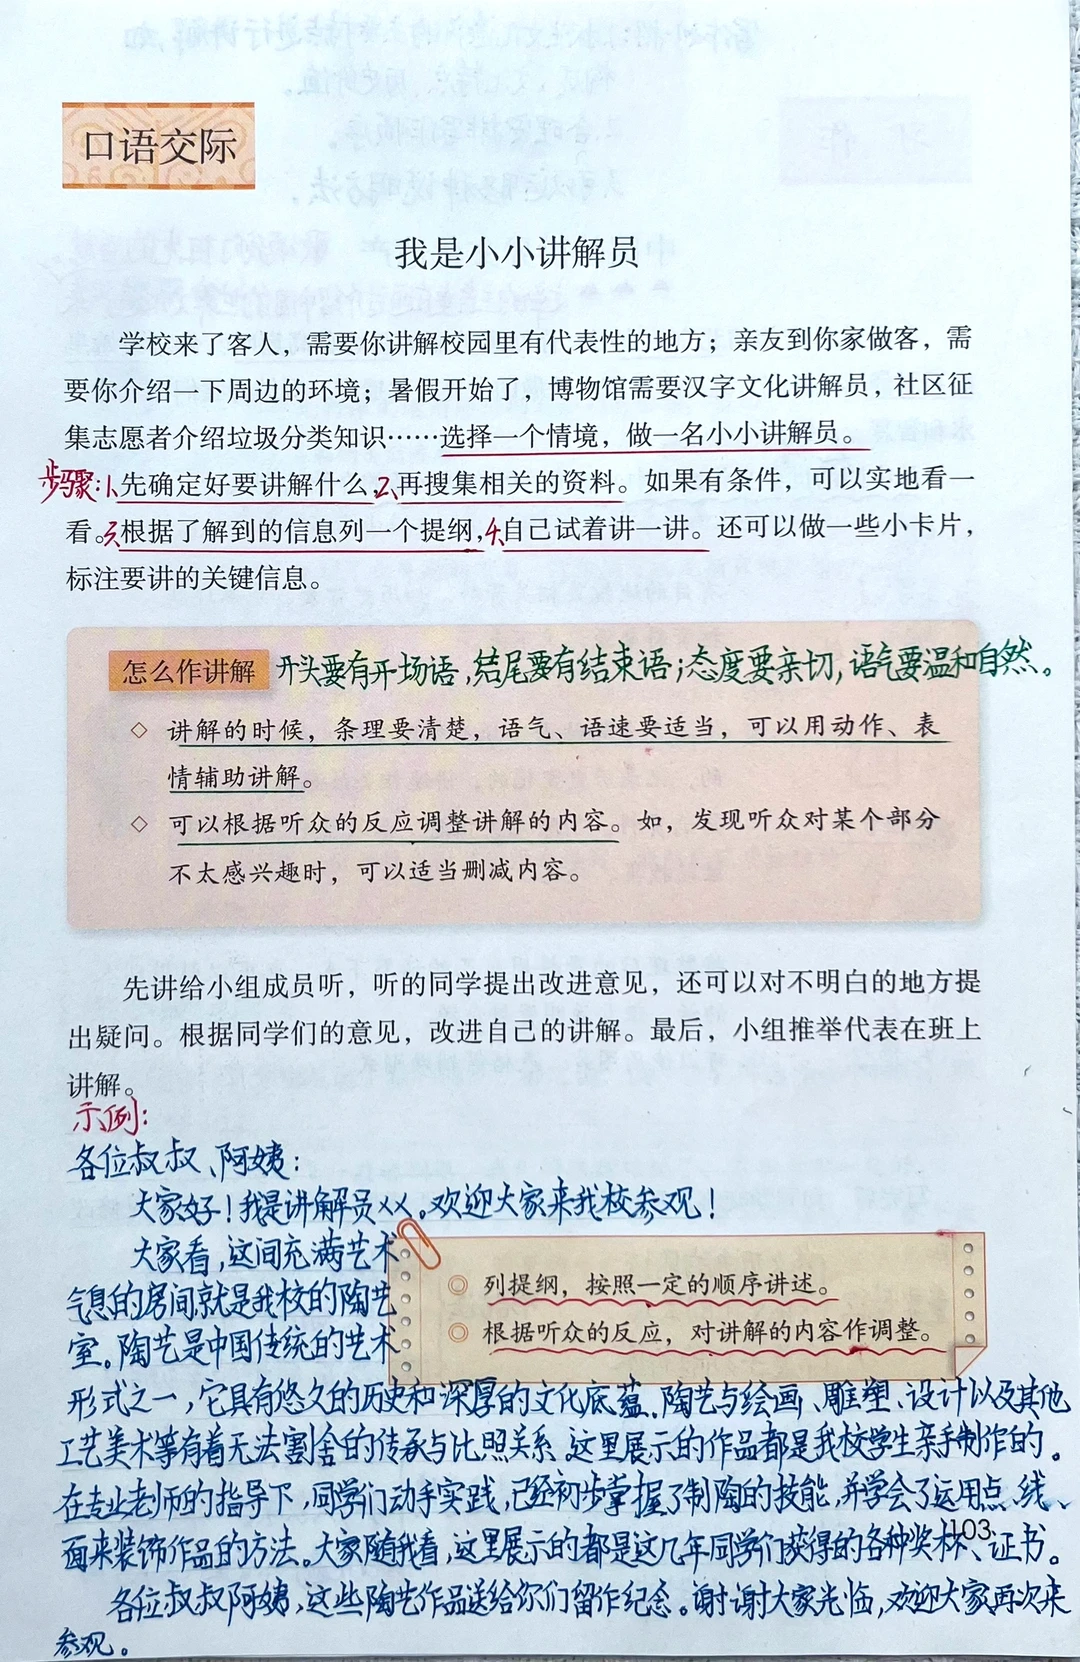 口语交际
我是小小讲解员
学校来了客人，需要你讲解校园里有代表性的地方；亲友到你家做客，需
要你介绍一下周边的环境；暑假开始了，博物馆需要汉字文化讲解员，社区征
集志愿者介绍垃圾分类知识……选择一个情境，做一名小小讲解员。
步骤：1、先确定好要讲解什么，2、再搜集相关的资料。如果有条件，可以实地看一
看。3、根据了解到的信息列一个提纲，4、自己试着讲一讲。还可以做一些小卡片，
标注要讲的关键信息。
怎么作讲解 开头要有开场语，结尾要有结束语；态度要亲切，语气要温和自然。
◇ 讲解的时候，条理要清楚，语气、语速要适当，可以用动作、表
情辅助讲解。
◇ 可以根据听众的反应调整讲解的内容。如，发现听众对某个部分
不太感兴趣时，可以适当删减内容。
先讲给小组成员听，听的同学提出改进意见，还可以对不明白的地方提
出疑问。根据同学们的意见，改进自己的讲解。最后，小组推举代表在班上
讲解。
示例：
各位叔叔、阿姨：
大家好！我是讲解员××。欢迎大家来我校参观！
大家看，这间充满艺术
气息的房间就是我校的陶艺
室。陶艺是中国传统的艺术
◎ 列提纲，按照一定的顺序讲述。
◎ 根据听众的反应，对讲解的内容作调整。
形式之一，它具有悠久的历史和深厚的文化底蕴。陶艺与绘画、雕塑、设计以及其他
工艺美术等有着无法割舍的传承与比照关系。这里展示的作品都是我校学生亲手制作的。
在专业老师的指导下，同学们动手实践，已经初步掌握了制陶的技能，并学会了运用点、线、
面来装饰作品的方法。大家随我看，这里展示的都是这几年同学们获得的各种奖杯、证书。
103
各位叔叔阿姨，这些陶艺作品送给你们留作纪念。谢谢大家光临，欢迎大家再次来
参观。